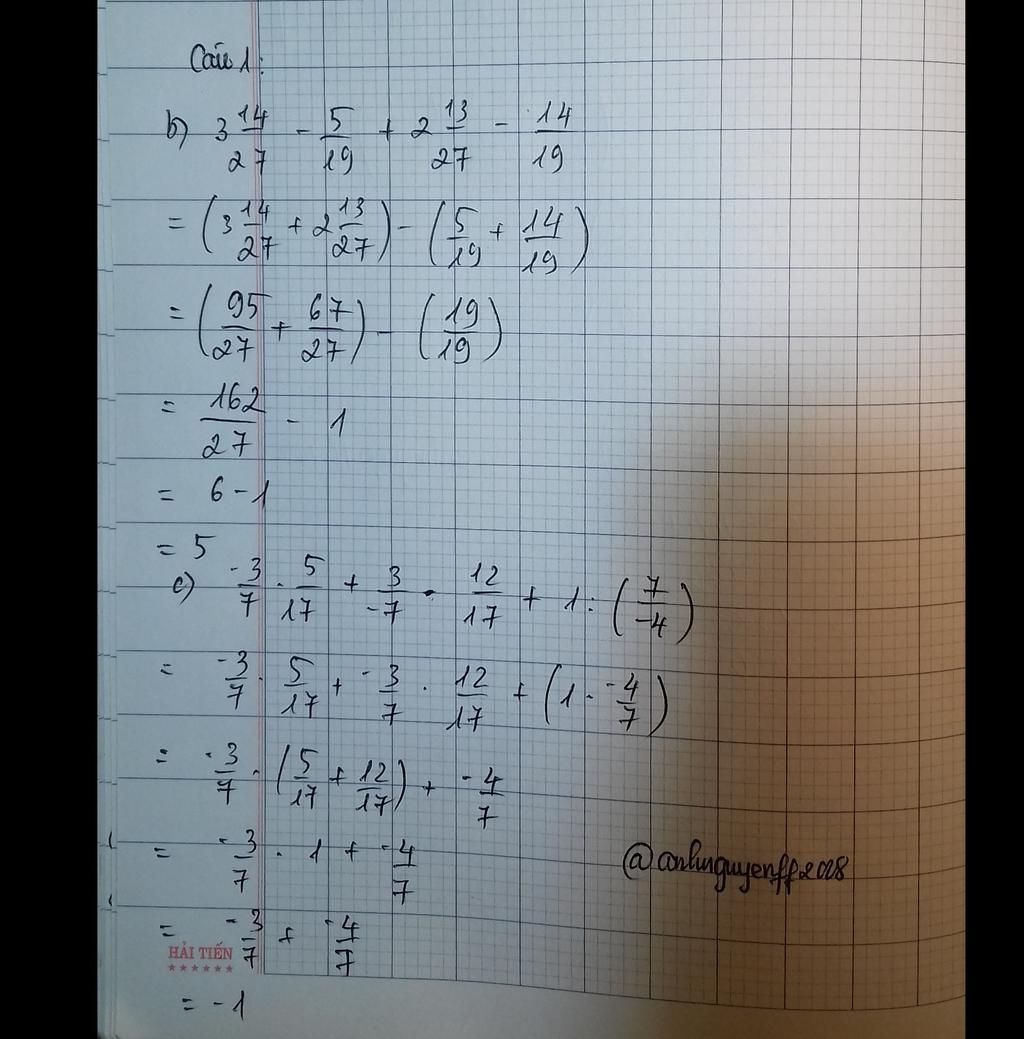 Câu 1:
b) 3 14/27 - 5/19 + 2 13/27 - 14/19
= (3 14/27 + 2 13/27) - (5/19 + 14/19)
= (95/27 + 67/27) - (19/19)
= 162/27 - 1
= 6 - 1
= 5
c) -3/7 . 5/17 + 3/-7 . 12/17 + 1 : (7/-4)
= -3/7 . 5/17 + -3/7 . 12/17 + (1 . -4/7)
= -3/7 . (5/17 + 12/17) + -4/7
= -3/7 . 1 + -4/7
@anhnguyenff2008
= -3/7 + -4/7
HẢI TIẾN
= -1